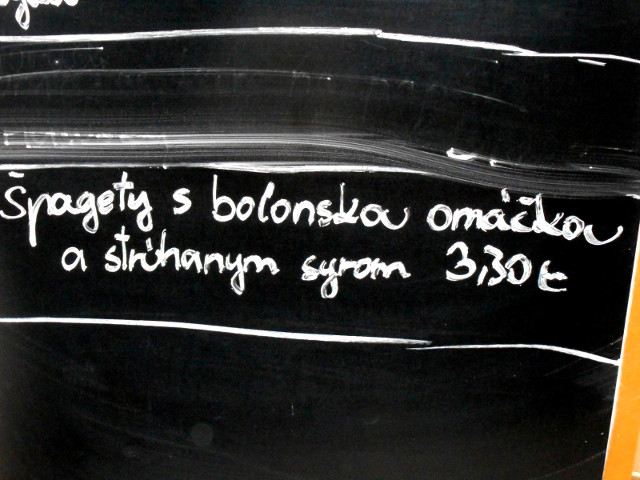 Špagety s bolonskou omáčkou
a strúhanym syrom 3,30 €